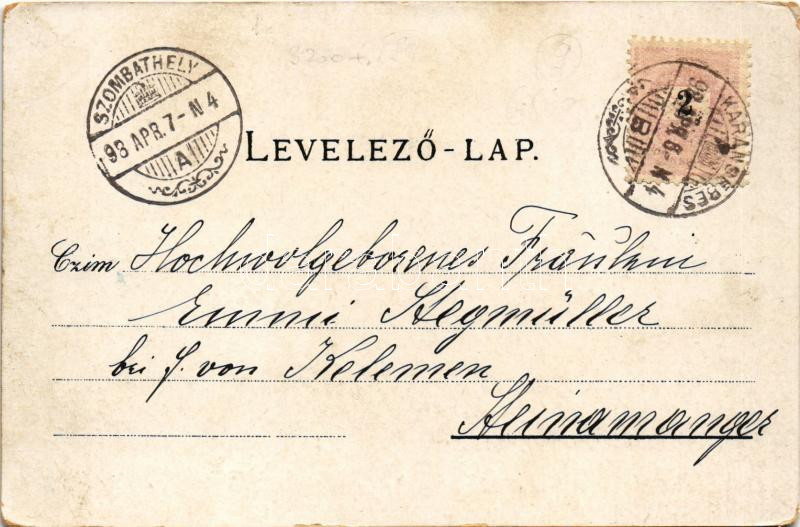 SZOMBATHELY
98 APR. 7 - N 4
A
2
KARÁNSEBES
98 APR. 6 - N 4
B
LEVELEZŐ-LAP.
Czim Hochwolgeborenes Fräulein
Emmi Stegmüller
bei J. von Kelemen
Steinamanger